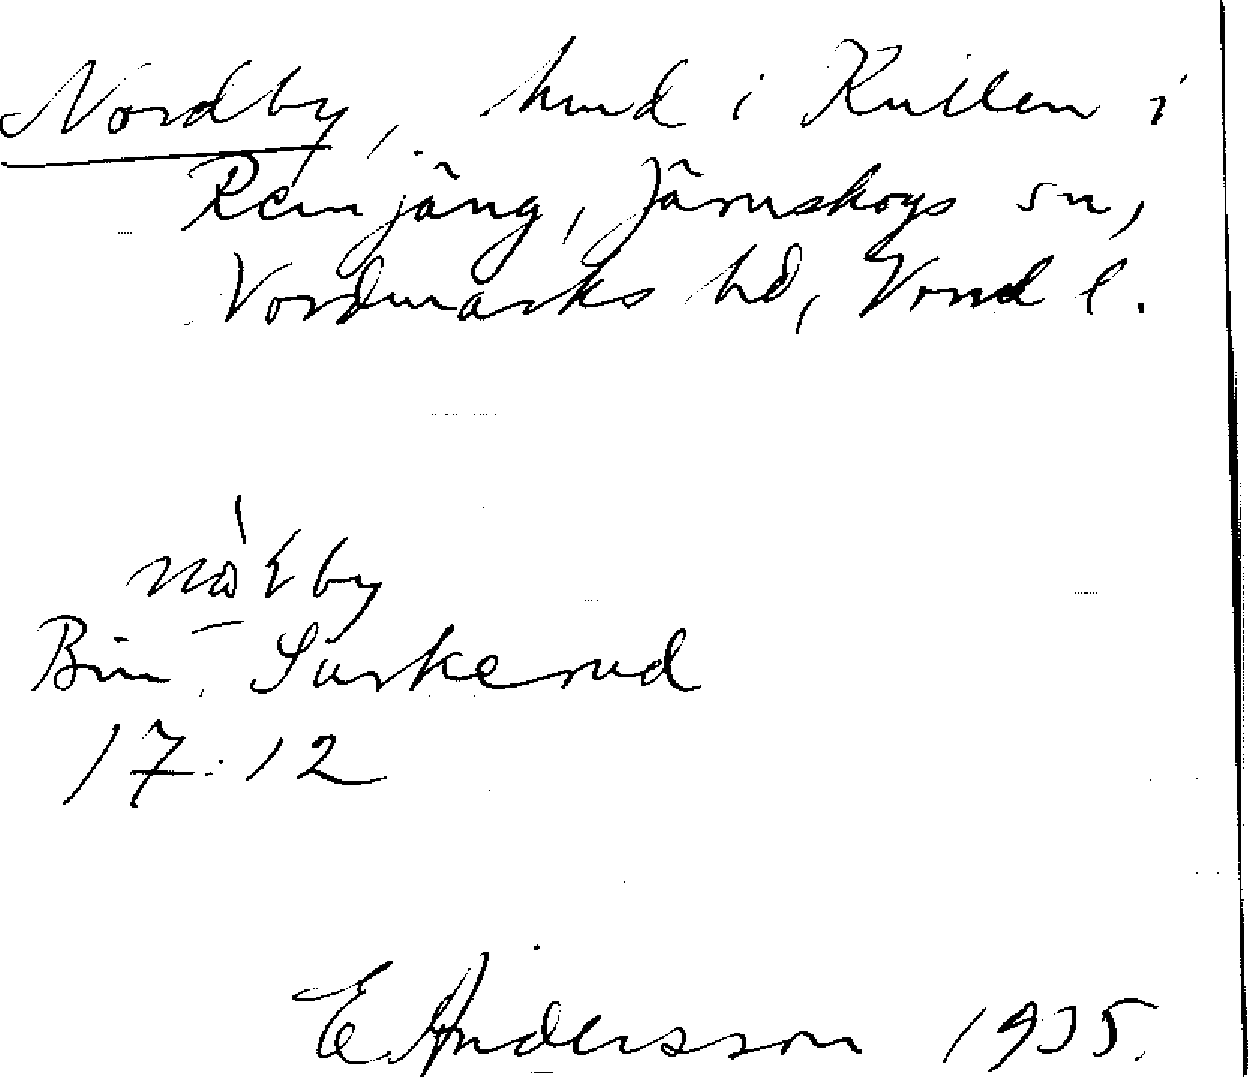 Nordby, hmd i Kullen i
Remjäng, Järnskogs sn,
Nordmarks hd, Vrml l.
Bin. Surkerud
17:12
E. Andersson 1935.